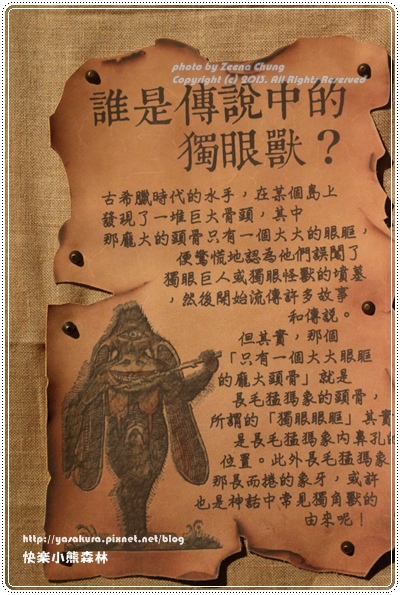 photo by Zeena Chung
Copyright (c) 2013. All Rights Reserved
誰是傳說中的
獨眼獸？
古希臘時代的水手，在某個島上
發現了一堆巨大骨頭，其中
那龐大的頭骨只有一個大大的眼眶，
便驚慌地認為他們誤闖了
獨眼巨人或獨眼怪獸的墳墓
，然後開始流傳許多故事
和傳說。
但其實，那個
「只有一個大大眼眶
的龐大頭骨」就是
長毛猛獁象的頭骨，
所謂的「獨眼眼眶」其實
是長毛猛獁象內鼻孔的
位置。此外長毛猛獁象
那長而捲的象牙，或許
也是神話中常見獨角獸的
由來呢！
http://yasakura.pixnet.net/blog
快樂小熊森林